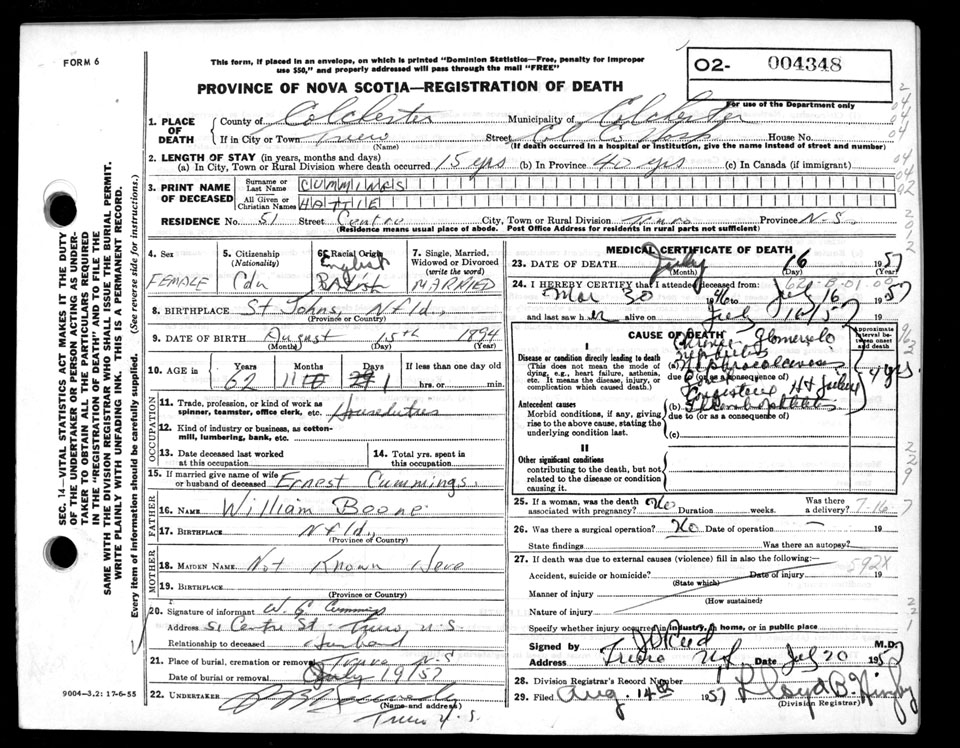 FORM 6
This form, if placed in an envelope, on which is printed "Dominion Statistics—Free, penalty for improper
use $50," and properly addressed will pass through the mail "FREE"
O2- 004348
PROVINCE OF NOVA SCOTIA—REGISTRATION OF DEATH
For use of the Department only
1. PLACE OF DEATH
County of Colchester Municipality of Colchester
If in City or Town Truro Street House No.
(Name) (If death occurred in a hospital or institution, give the name instead of street and number)
2. LENGTH OF STAY (in years, months and days)
(a) In City, Town or Rural Division where death occurred 15 yrs (b) In Province 40 yrs (c) In Canada (if immigrant)
3. PRINT NAME OF DECEASED
Surname or Last Name CUMMINGS
All Given or Christian Names HATTIE
RESIDENCE No. 51 Street Centre City, Town or Rural Division Truro Province N-S.
(Residence means usual place of abode. Post Office Address for residents in rural parts not sufficient)
4. Sex FEMALE
5. Citizenship (Nationality) Cdn
6. Racial Origin English
7. Single, Married, Widowed or Divorced (write the word) MARRIED
8. BIRTHPLACE St Johns, Nfld.,
(Province or Country)
9. DATE OF BIRTH August 15th 1894
(Month) (Day) (Year)
10. AGE in Years 62 Months 11 Days 1 If less than one day
hrs. or min.
OCCUPATION
11. Trade, profession, or kind of work as
spinner, teamster, office clerk, etc. Houseduties
12. Kind of industry or business, as cotton-
mill, lumbering, bank, etc.
13. Date deceased last worked
at this occupation
14. Total yrs. spent in
this occupation
15. If married give name of wife
or husband of deceased Ernest Cummings.
FATHER
16. NAME William Boone
17. BIRTHPLACE Nfld.,
(Province or Country)
MOTHER
18. MAIDEN NAME Not Known Here
19. BIRTHPLACE
(Province or Country)
20. Signature of informant W. E. Cummings
Address 51 Centre St- Truro N.S.
Relationship to deceased Husband
21. Place of burial, cremation or removal Truro N.S
Date of burial or removal July 19/57
22. UNDERTAKER
(Name and address)
Truro N.S.
9004—3.2: 17-6-55
SEC. 14—VITAL STATISTICS ACT MAKES IT THE DUTY
OF THE UNDERTAKER OR PERSON ACTING AS UNDER-
TAKER TO OBTAIN ALL THE PARTICULARS REQUIRED
IN THE "REGISTRATION OF DEATH" AND TO FILE THE
SAME WITH THE DIVISION REGISTRAR WHO SHALL ISSUE THE BURIAL PERMIT.
WRITE PLAINLY WITH UNFADING INK. THIS IS A PERMANENT RECORD.
Every item of information should be carefully supplied. (See reverse side for instructions.)
MEDICAL CERTIFICATE OF DEATH
23. DATE OF DEATH July 16 1957
(Month) (Day) (Year)
24. I HEREBY CERTIFY that I attended deceased from:
Mar 30 1946 to July 16 1957
and last saw her alive on July 16 1957
CAUSE OF DEATH
Approximate interval between onset and death
I
Disease or condition directly leading to death
(This does not mean the mode of
dying, e.g., heart failure, asthenia,
etc. It means the disease, injury, or
complication which caused death.)
(a) Chronic Glomerulo
nephritis
Nephrosclerosis
due to (or as a consequence of)
4 yrs.
Antecedent causes
Morbid conditions, if any, giving
rise to the above, stating the
underlying condition last.
(b)
due to (or as a consequence of)
(c)
II
Other significant conditions
contributing to the death, but not
related to the disease or condition
causing it.
25. If a woman, was the death
associated with pregnancy? No Duration weeks. Was there
a delivery? 7-16
26. Was there a surgical operation? No Date of operation — 19
State findings Was there an autopsy?
27. If death was due to external causes (violence) fill in also the following:—
592X
Accident, suicide or homicide? Date of injury 19
(State which)
Manner of injury
(How sustained)
Nature of injury
Specify whether injury occurred in industry, home, or in public place
Signed by J D Reed M.D.
Address Truro N.S Date July 20 1957
28. Division Registrar's Record Number
29. Filed Aug. 14th 1957 Lloyd B.
(Division Registrar)